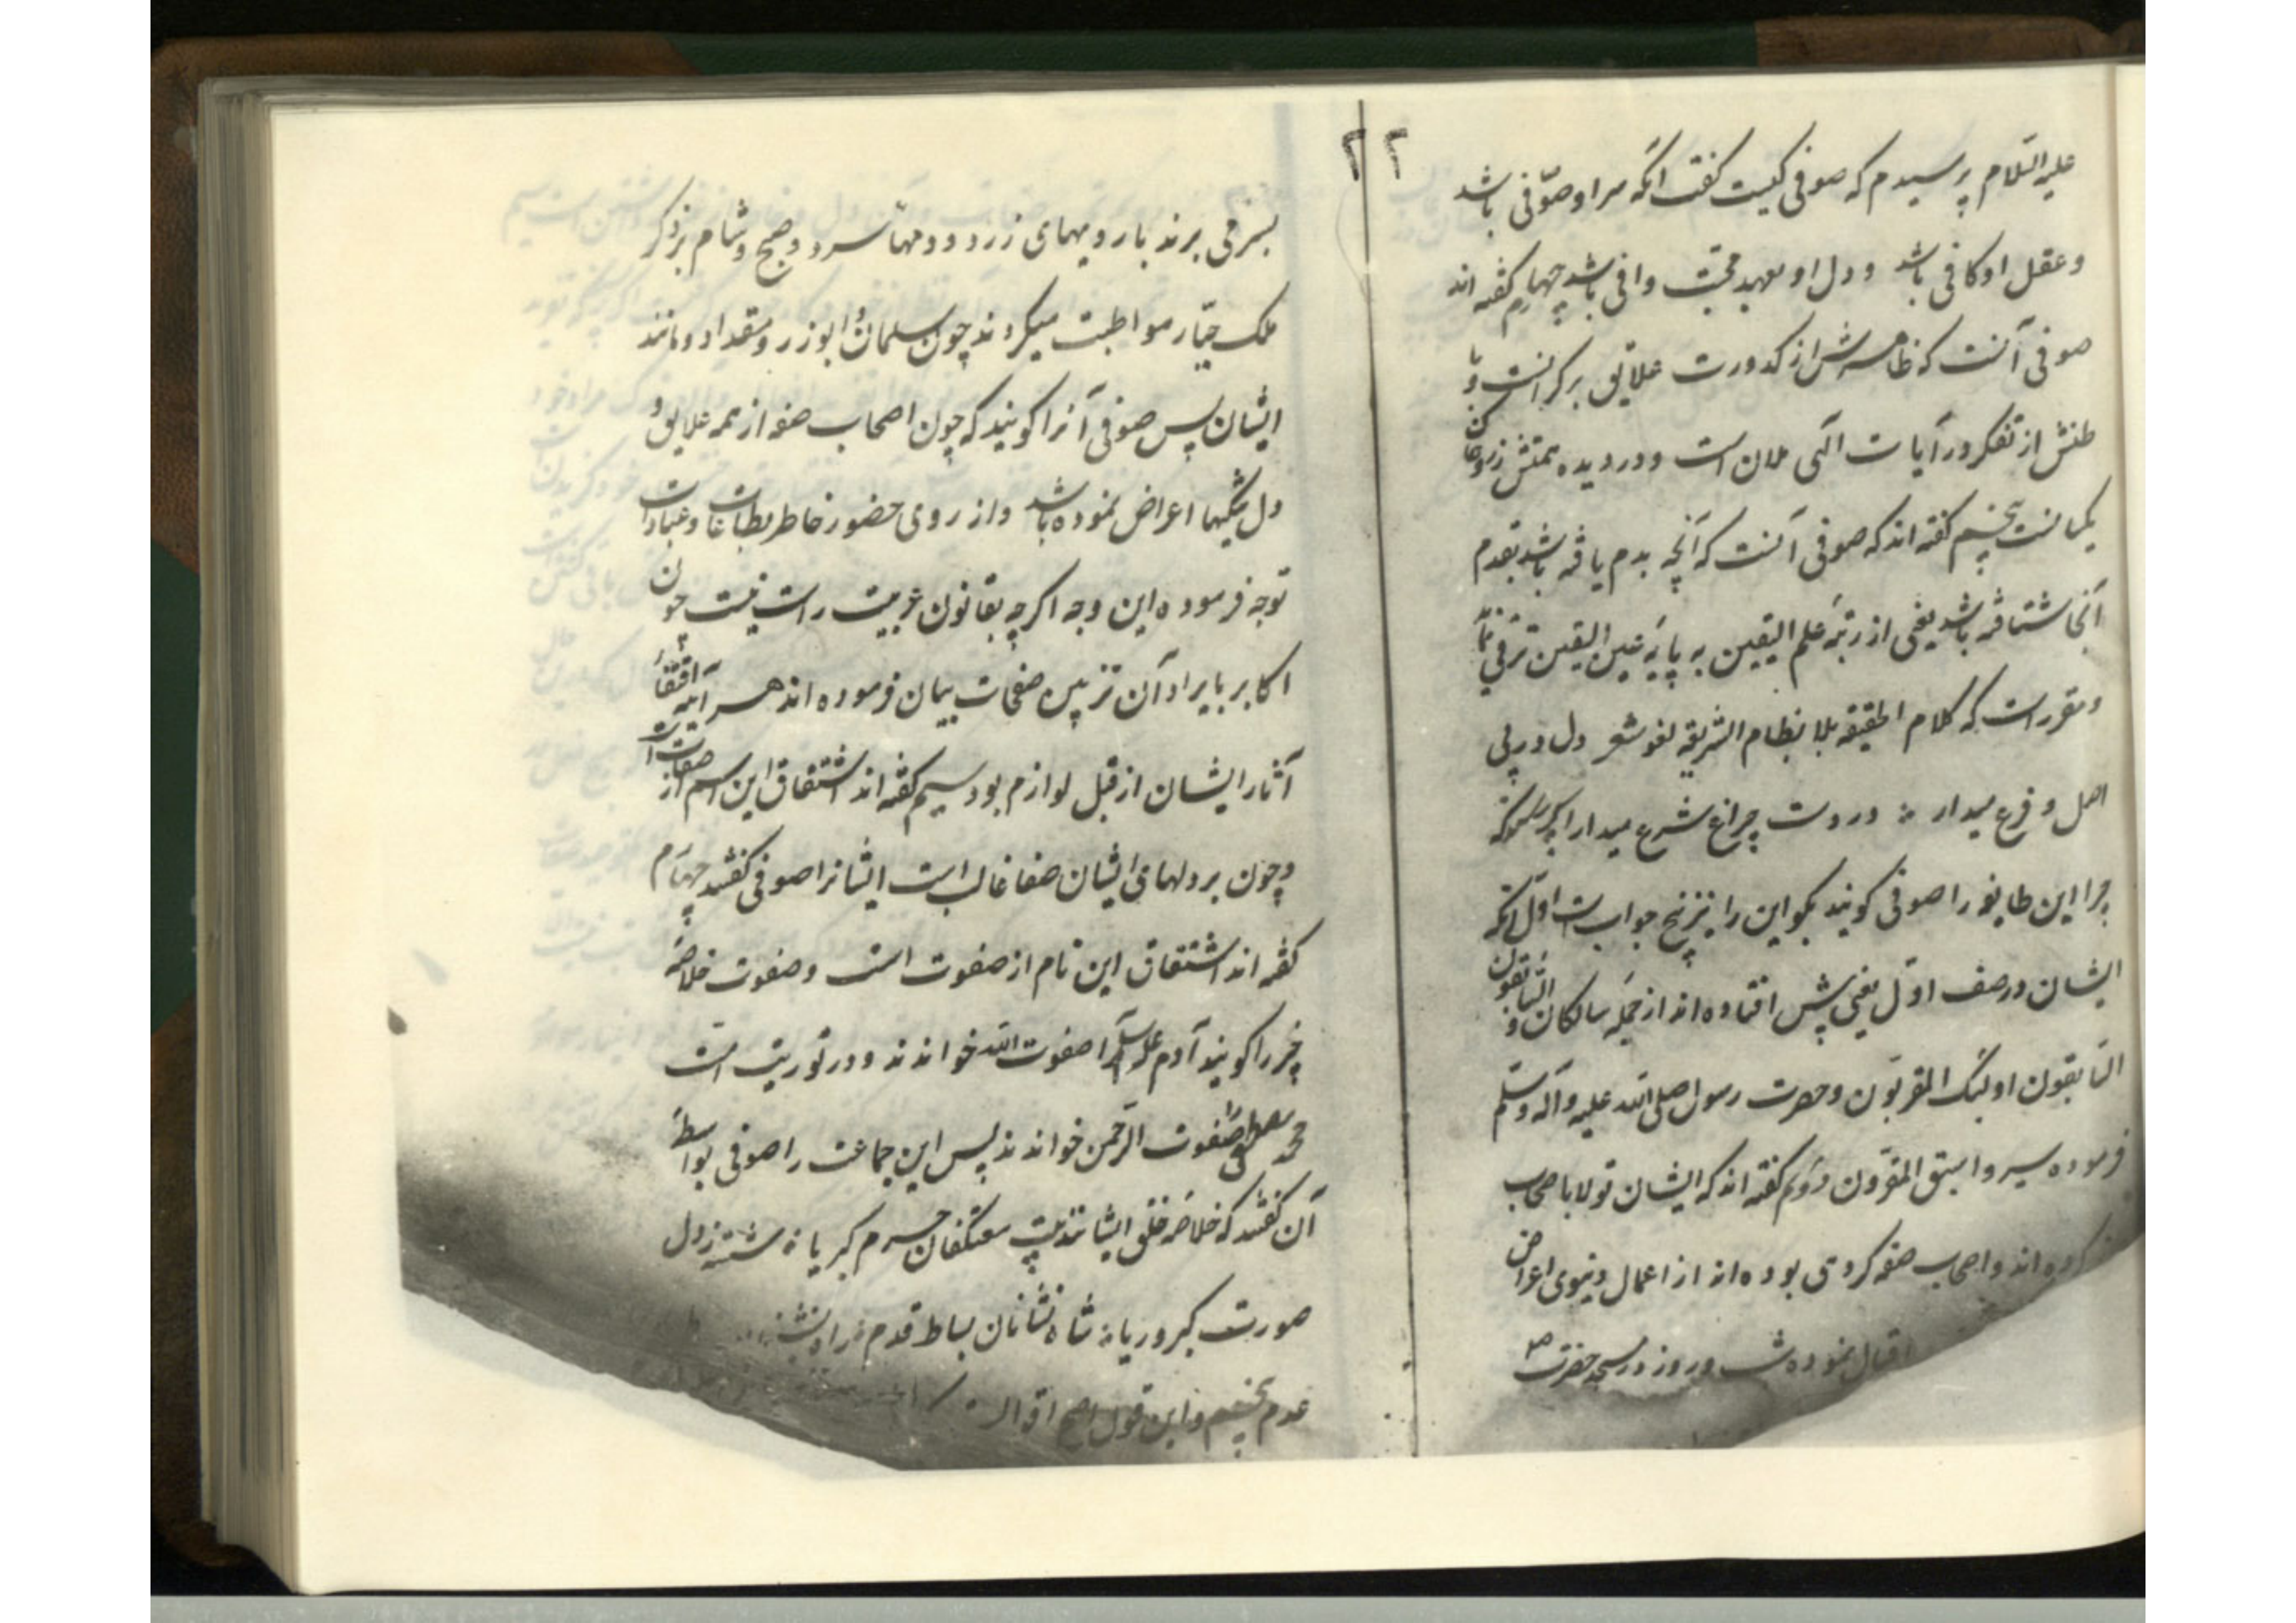 ۲۲
علیه السلام پرسیدم که صوفی کیست گفت آنکه سر او صوفی باشد
و عقل او کافی باشد و دل او بعهد محبت وافی باشد چهارم گفته اند
صوفی آنست که ظاهرش از کدورت علایق برکرانست و با
طنش از تفکر در آیات الهی ملان است و در دیده همتش زر و خاک
یکسانست پنجم گفته اند که صوفی آنست که آنچه بدم یافته باشد بقدم
آنجا شتافته باشد یعنی از رتبه علم الیقین به پایه عین الیقین ترقی
و مقرر است که کلام الحقیقه بلا نظام الشریقه لغو شعر دل در پی
اصل و فرع میدار در دست چراغ شرع میدار اکر
چرا این طایفه را صوفی کویند بکو این را نیز پنج جوابست اول آنکه
ایشان در صف اول یعنی پیش افتاده اند از جمله سالکان و السابقون
السابقون اولئک المقربون و حضرت رسول صلی الله علیه و آله و سلم
فرموده سیروا سبق المفردون دویم گفته اند که ایشان تولا باصحاب
کرده اند و اصحاب صفه کروهی بوده اند از اعمال دنیوی اعراض
اقبال نموده شب و روز در مسجد حضرت
بسر می برند با رویهای زرد و دمهای سرد و صبح و شام بر ذکر
ملک جبار مواظبت میکردند چون سلمان و ابوذر و مقداد و مانند
ایشان پس صوفی آنرا کویند که چون اصحاب صفه از همه علایق
دل شکیبها اعراض نموده باشد و از روی حضور خاطر بطاعات و عبادات
توجه فرموده این وجه اکرچه بقانون عربیت راست نیست چون
اکابر بایراد آن تزیین صفحات بیان فرموده اند هر آینه اقتفاء
آثار ایشان از قبل لوازم بود سیم گفته اند اشتقاق این اسم از صفات است
و چون بر دلهای ایشان صفا غالب است ایشانرا صوفی گفتند چهارم
گفته اند اشتقاق این نام از صفوت است و صفوت خلاصه
چیز را کویند آدم علیه السلام را صفوت الله خواندند و در توریت است
محمد مصطفی صفوت الرحمن خواندند پس این جماعت را صوفی بواسطه
آن گفتند که خلاصه خلق ایشانند بیت معتکفان حرم کبریا شسته ز دل
صورت کبر و ریا شاه نشانان بساط قدم
عدم پنجم و این قول اصح اقوال